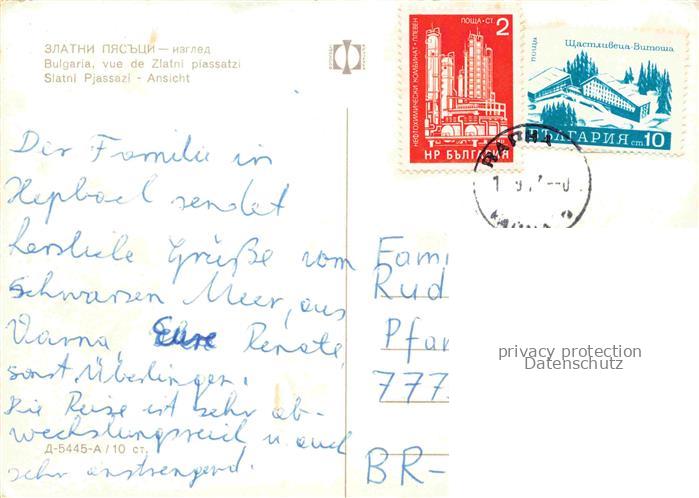 ЗЛАТНИ ПЯСЪЦИ — изглед
Bulgaria, vue de Zlatni piassatzi
Slatni Pjassazi - Ansicht
НЕФТОХИМИЧЕСКИ КОМБИНАТ · ПЛЕВЕН
ПОЩА · СТ. 2
НР БЪЛГАРИЯ
поща
Щастливеца-Витоша
БЪЛГАРИЯ ст 10
Der Familie in
sendet
herzliche Grüße vom
schwarzen Meer, aus
Varna, Eure Renate,
sonst Überlingen.
Die Reise ist sehr ab-
wechslungsreich u. auch
sehr anstrengend.
Д-5445-А / 10 ст.
Fami
Rud
Pfar
777
BR-
privacy protection
Datenschutz